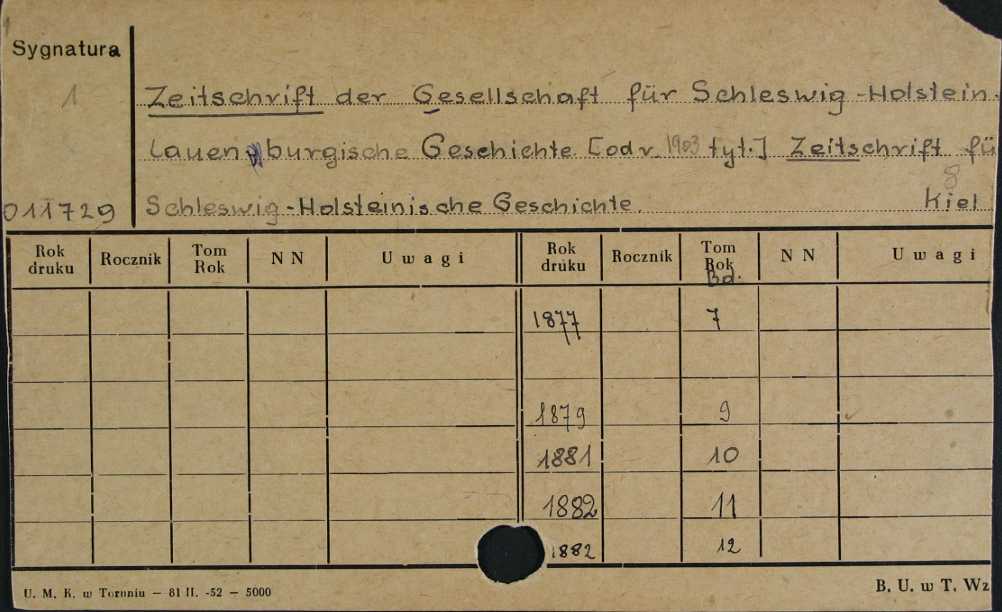 Sygnatura
1
Zeitschrift der Gesellschaft für Schleswig-Holstein-
lauenburgische Geschichte [od r. 1903 tyt.] Zeitschrift fü
8
011729 Schleswig-Holsteinische Geschichte. Kiel
Rok druku Rocznik Tom Rok N N Uwagi Rok druku Rocznik Tom Rok N N Uwagi
Bd.
1877 7
1879 9
1881 10
1882 11
1882 12
U. M. K. w Toruniu — 81 II. -52 — 5000 B. U. w T. Wz